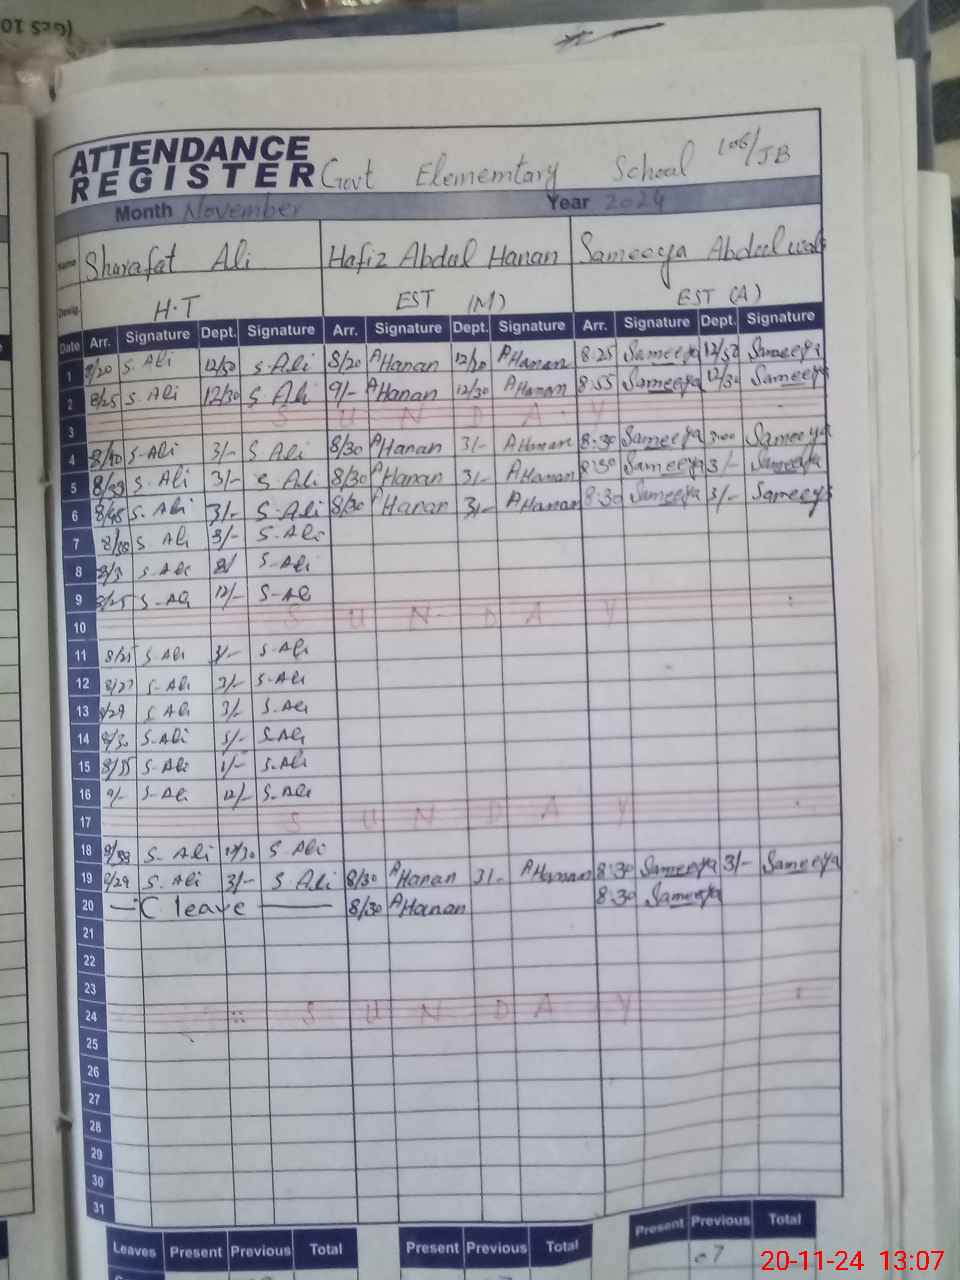 ATTENDANCE
REGISTER Govt Elememtary School 106/JB
Month November Year 2024
Name Sharafat Ali Hafiz Abdul Hanan Sameeya Abdul
Desig. H.T EST (M) EST (A)
Date Arr. Signature Dept. Signature Arr. Signature Dept. Signature Arr. Signature Dept. Signature
1 8/20 S. Ali 12/30 S. Ali 8/20 A Hanan 12/30 A Hanan 8:25 Sameeya 12/30 Sameeya
2 8/25 S. Ali 12/30 S Ali 9/- A Hanan 12/30 A Hanan 8:55 Sameeya 12/30 Sameeya
3 SUNDAY
4 8/40 S-Ali 3/- S Ali 8/30 A Hanan 3/- A Hanan 8:30 Sameeya 3:00 Sameeya
5 8/33 S. Ali 3/- S. Ali 8/30 A Hanan 3/- A Hanan 8:30 Sameeya 3/- Sameeya
6 8/45 S. Ali 3/- S. Ali 8/30 A Hanan 3/- A Hanan 8:30 Sameeya 3/- Sameeya
7 S Ali 3/- S. Ali
8 S-Ali S-Ali
9 8/25 S-Ali 12/- S-Ali
10 SUNDAY
11 8/25 S-Ali 3/- S-Ali
12 8/27 S-Ali 3/- S-Ali
13 8/29 S Ali 3/- S-Ali
14 8/30 S-Ali S-Ali
15 8/35 S-Ali 1/- S-Ali
16 9/- S-Ali 12/- S-Ali
17 SUNDAY
18 S. Ali S Ali
19 8/29 S. Ali 3/- S Ali 8/30 A Hanan 3/- A Hanan 8:30 Sameeya 3/- Sameeya
20 — C leave — 8/30 A Hanan 8:30 Sameeya
21
22
23
24 SUNDAY
25
26
27
28
29
30
31
Leaves Present Previous Total Present Previous Total Present Previous Total
07
20-11-24 13:07